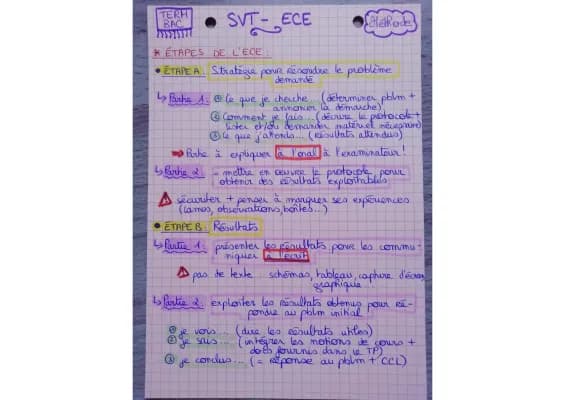 TERM BAC
SVT - ECE
Méthode
* ÉTAPES DE L'ECE :
• ÉTAPE A : Stratégie pour résoudre le problème
demandé
↳ Partie 1 : ① Ce que je cherche... (déterminer pblm +
annoncer la démarche)
② Comment je fais... (décrire le protocole +
lister et/ou demander matériel nécessaire)
③ Ce que j'attends... (résultats attendus)
➡ Partie à expliquer à l'oral à l'examinateur !
↳ Partie 2 : - mettre en oeuvre le protocole pour
obtenir des résultats exploitables
⚠ sécuriter + penser à marquer ses expériences
(lames, observations, boîtes...)
• ÉTAPE B : Résultats
↳ Partie 1 : présenter les résultats pour les commu-
niquer à l'écrit
⚠ pas de texte... schémas, tableau, capture d'écran,
graphique
↳ Partie 2 : exploiter les résultats obtenus pour ré-
pondre au pblm initial
① je vois... (dire les résultats utiles)
② je sais... (intégrer les notions de cours +
docs fournis dans le TP)
③ je conclus... (= réponse au pblm + CCL)